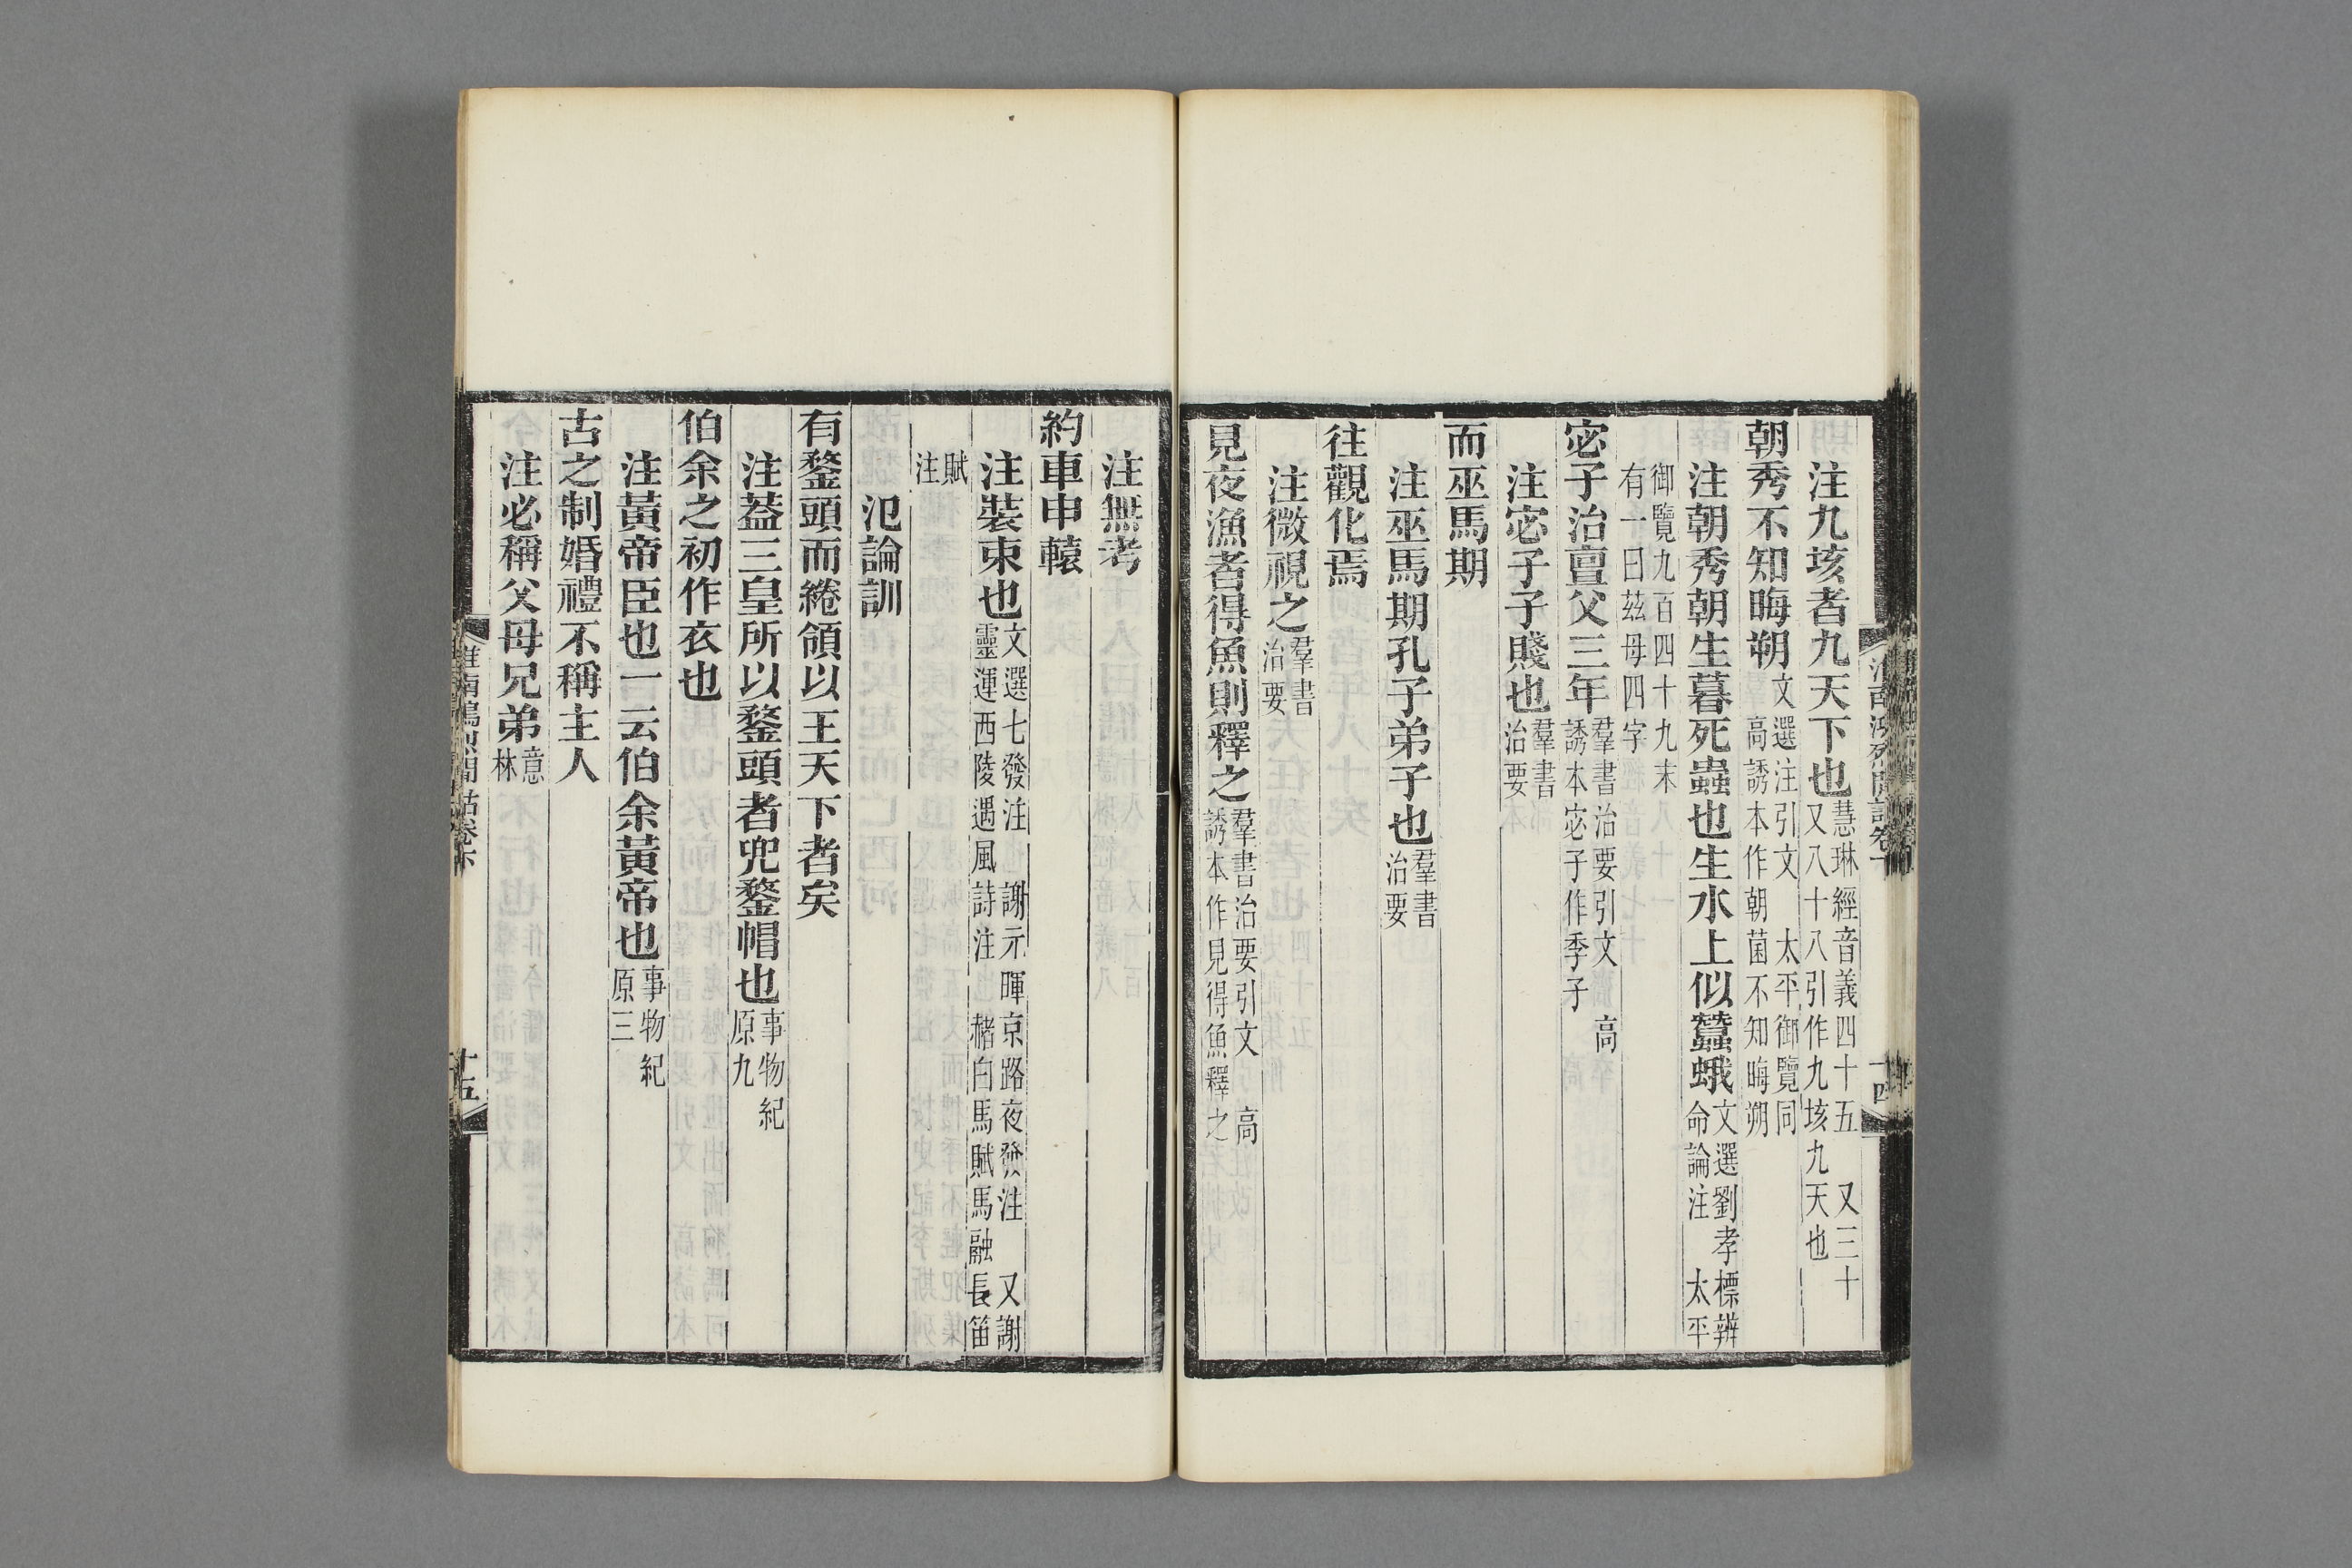 注九垓者九天下也慧琳經音義四十五　又三十又八十八引作九垓九天也
朝秀不知晦朔文選注引文　太平御覽同高誘本作朝菌不知晦朔
注朝秀朝生暮死蟲也生水上似蠶蛾文選劉孝標辨命論注　太平
御覽九百四十九末有一曰玆母四字
宓子治亶父三年羣書治要引文　高誘本宓子作季子
注宓子子賤也羣書治要
而巫馬期
注巫馬期孔子弟子也羣書治要
往觀化焉
注微視之羣書治要
見夜漁者得魚則釋之羣書治要引文　高誘本作見得魚釋之
注無考
約車申轅
注裝束也文選七發注　謝元暉京路夜發注　又謝靈運西陵遇風詩注　赭白馬賦馬融長笛
賦注
氾論訓
有鍪頭而綣領以王天下者矣
注葢三皇所以鍪頭者兜鍪帽也事物紀原九
伯余之初作衣也
注黃帝臣也一云伯余黃帝也事物紀原三
古之制婚禮不稱主人
注必稱父母兄弟意林
十五